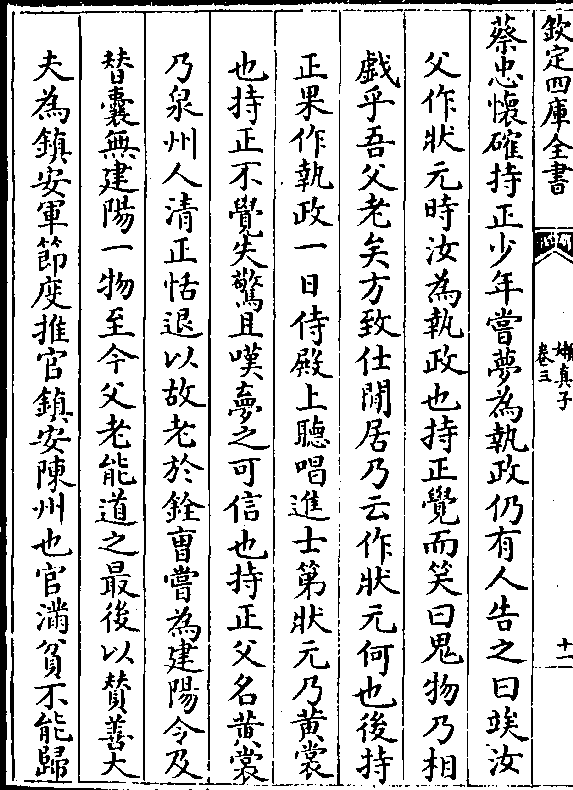 欽定四庫全書
懶真子
卷三
十一
蔡忠懷確持正少年嘗夢為執政仍有人告之曰竢汝
父作狀元時汝為執政也持正覺而笑曰鬼物乃相
戯乎吾父老矣方致仕閒居乃云作狀元何也後持
正果作執政一日侍殿上聽唱進士第狀元乃黄裳
也持正不覺失驚且嘆夢之可信也持正父名黄裳
乃泉州人清正恬退以故老於銓曹嘗為建陽令及
替囊無建陽一物至今父老能道之最後以賛善大
夫為鎮安軍節度推官鎮安陳州也官滿貧不能歸